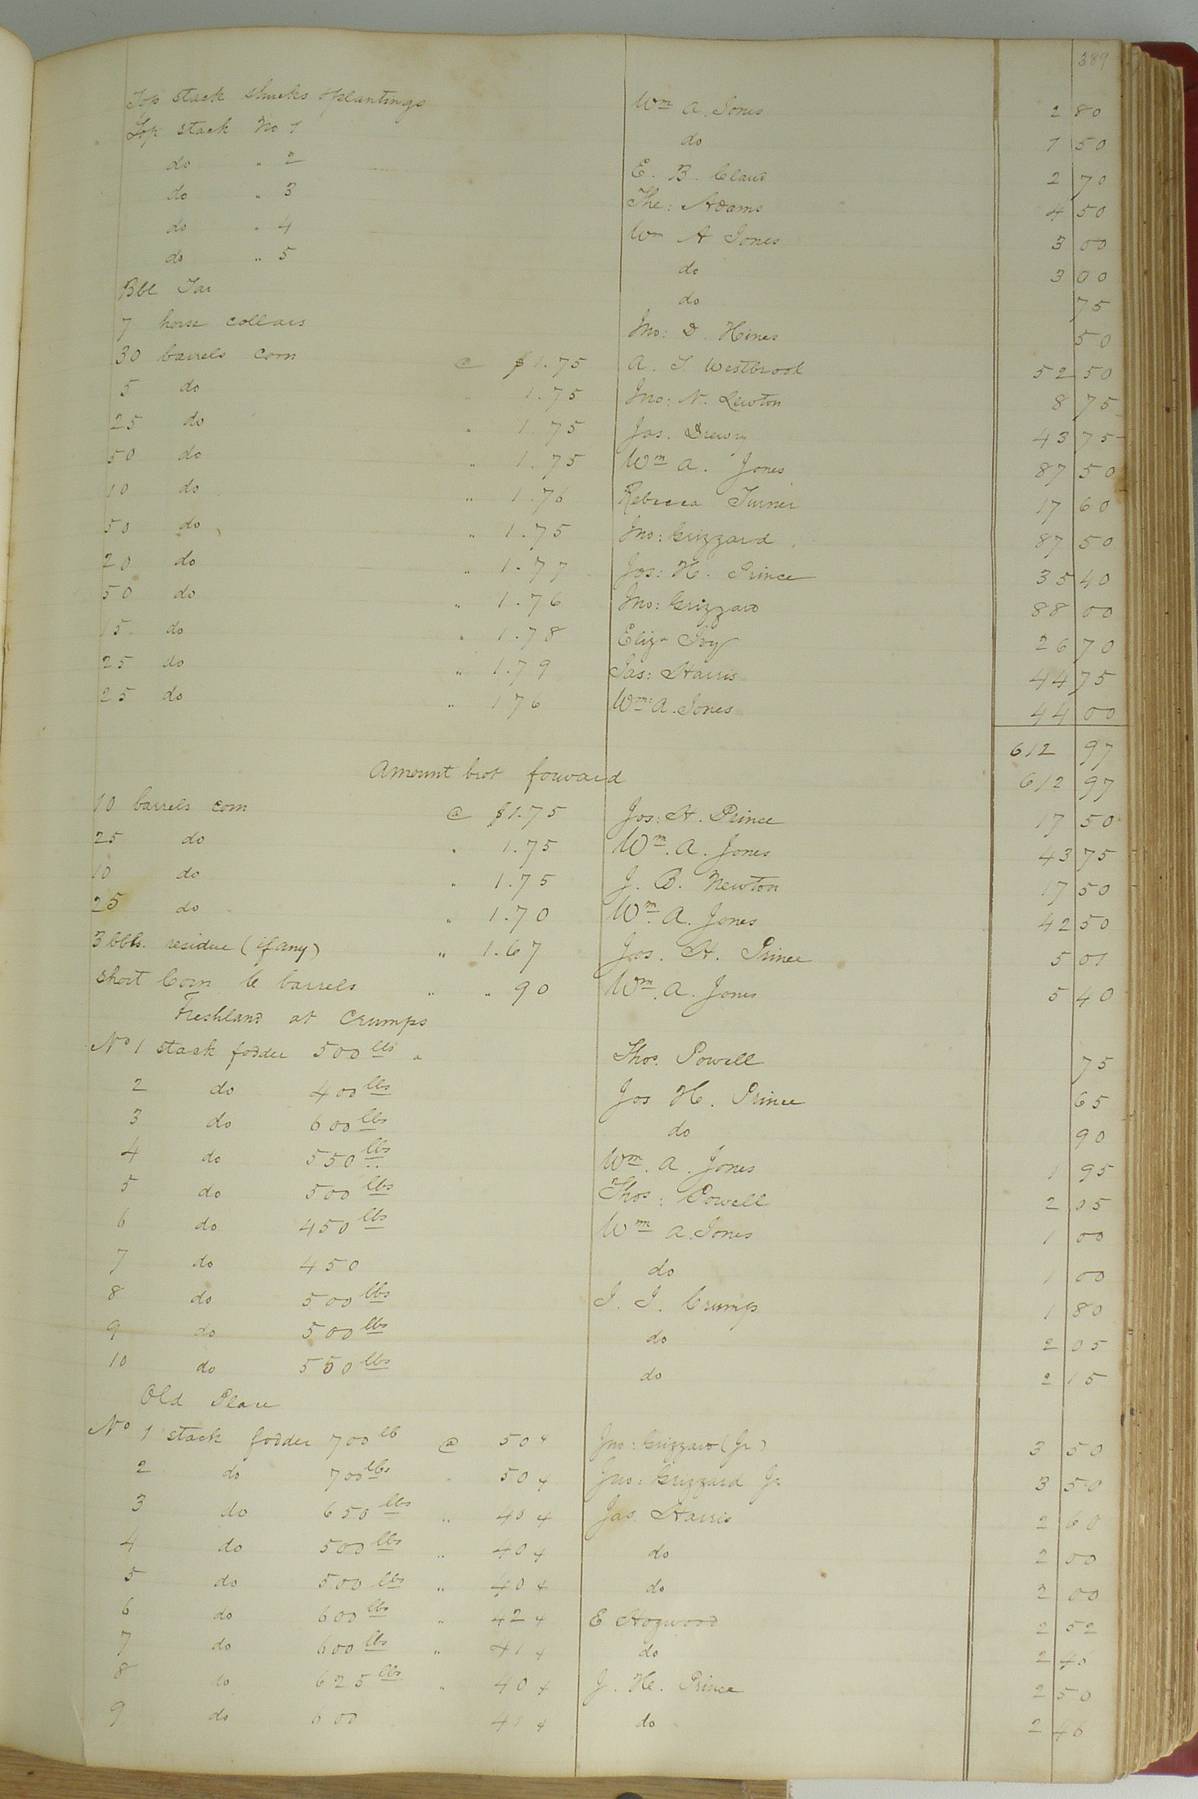 389
Top stack shucks & plantings Wm A. Jones 2 80
Top stack No 1 do 1 50
do " 2 E. B. Claud 2 70
do " 3 Tho: Adams 4 50
do " 4 Wm A Jones 3 00
do " 5 do 3 00
Bbl Tar do 75
7 horse collars Jno: D. Hines 50
30 barrels corn @ $1.75 A. J. Westbrook 52 50
5 do 1.75 Jno: N. Newton 8 75
25 do " 1.75 Jas. Drewry 43 75
50 do " 1.75 Wm A. Jones 87 50
10 do " 1.76 Rebecca Turner 17 60
50 do " 1.75 Jno: Grizzard 87 50
20 do " 1.77 Jos: H. Prince 35 40
50 do " 1.76 Jno: Grizzard 88 00
15 do " 1.78 Eliza Ivy 26 70
25 do " 1.79 Jas: Harris 44 75
25 do " 176 Wm A. Jones 44 00
612 97
Amount brot forward 612 97
10 barrels corn @ $1.75 Jos: H. Prince 17 50
25 do " 1.75 Wm. A. Jones 43 75
10 do " 1.75 J. B. Newton 17 50
25 do " 1.70 Wm. A. Jones 42 50
3 bbls. residue (if any) " 1.67 Jos. H. Prince 5 01
Short Corn 6 barrels " " 90 Wm. A. Jones 5 40
Freshland at Crumps
No 1 stack fodder 500 lbs " Thos. Powell 75
2 do 400 lbs Jos H. Prince 65
3 do 600 lbs do 90
4 do 550 lbs Wm. A. Jones 1 95
5 do 500 lbs Thos: Powell 2 05
6 do 450 lbs Wm A. Jones 1 00
7 do 450 do 1 00
8 do 500 lbs J. J. Crump 1 80
9 do 500 lbs do 2 05
10 do 550 lbs do 2 15
Old Place
No 1 stack fodder 700 lb @ 50 ¢ Jno: Grizzard (Jr) 3 50
2 do 700 lbs " 50 ¢ Jno: Grizzard Jr 3 50
3 do 650 lbs " 40 ¢ Jas. Harris 2 60
4 do 500 lbs " 40 ¢ do 2 00
5 do 500 lbs " 40 ¢ do 2 00
6 do 600 lbs " 42 ¢ E Hogwood 2 52
7 do 600 lbs " 41 ¢ do 2 46
8 do 625 lbs " 40 ¢ J. H. Prince 2 50
9 do 600 41 ¢ do 2 46